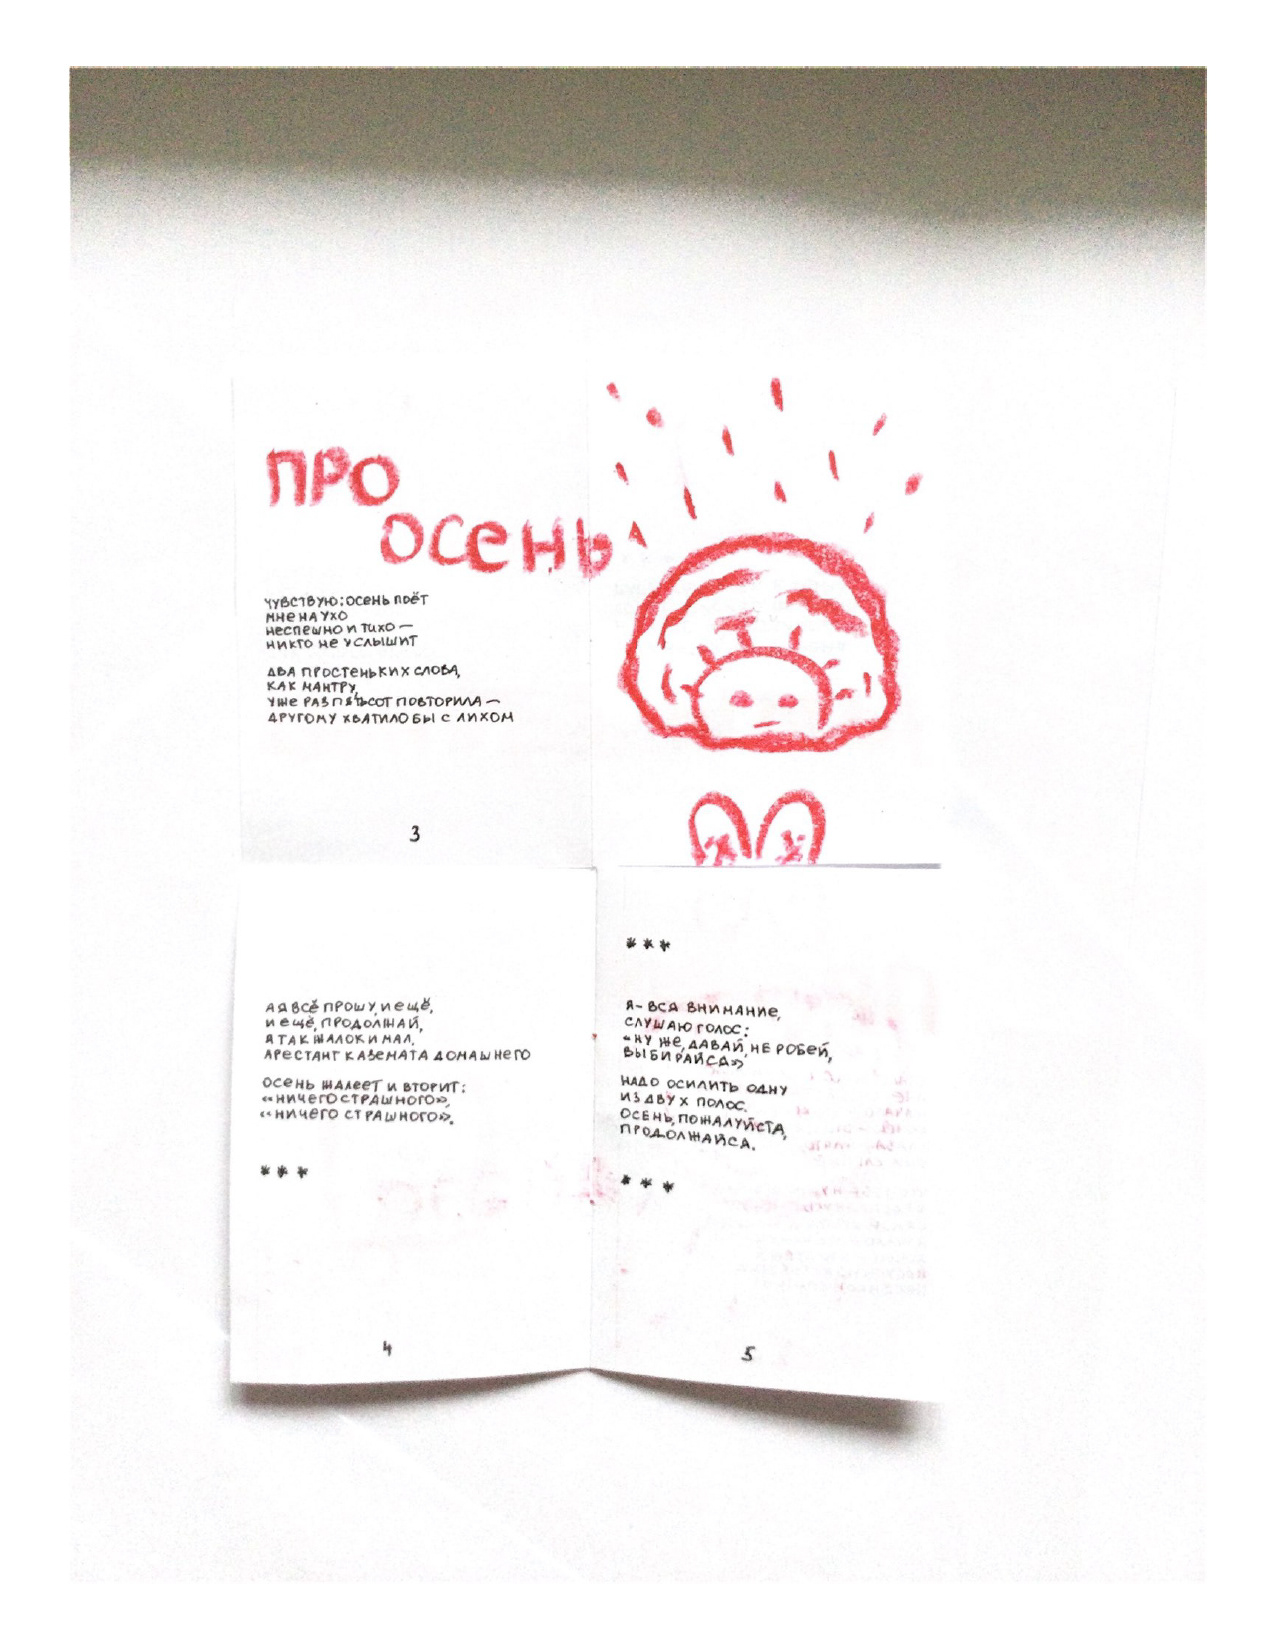 ПРО
ОСЕНЬ
ЧУВСТВУЮ: ОСЕНЬ ПОЁТ
МНЕ НА УХО
НЕСПЕШНО И ТИХО —
НИКТО НЕ УСЛЫШИТ
ДВА ПРОСТЕНЬКИХ СЛОВА,
КАК МАНТРУ,
УЖЕ РАЗ ПЯТЬСОТ ПОВТОРИЛА —
ДРУГОМУ ХВАТИЛО БЫ С ЛИХОМ
3
А Я ВСЁ ПРОШУ, И ЕЩЁ,
И ЕЩЁ, ПРОДОЛЖАЙ,
Я ТАК ЖАЛОК И МАЛ,
АРЕСТАНТ КАЗЕМАТА ДОМАШНЕГО
ОСЕНЬ ЖАЛЕЕТ И ВТОРИТ:
«НИЧЕГО СТРАШНОГО»,
«НИЧЕГО СТРАШНОГО».
* * *
4
* * *
Я – ВСЯ ВНИМАНИЕ,
СЛУШАЮ ГОЛОС:
«НУ ЖЕ, ДАВАЙ, НЕ РОБЕЙ,
ВЫБИРАЙСА»
НАДО ОСИЛИТЬ ОДНУ
ИЗ ДВУХ ПОЛОС.
ОСЕНЬ, ПОЖАЛУЙСТА,
ПРОДОЛЖАЙСА.
* * *
5